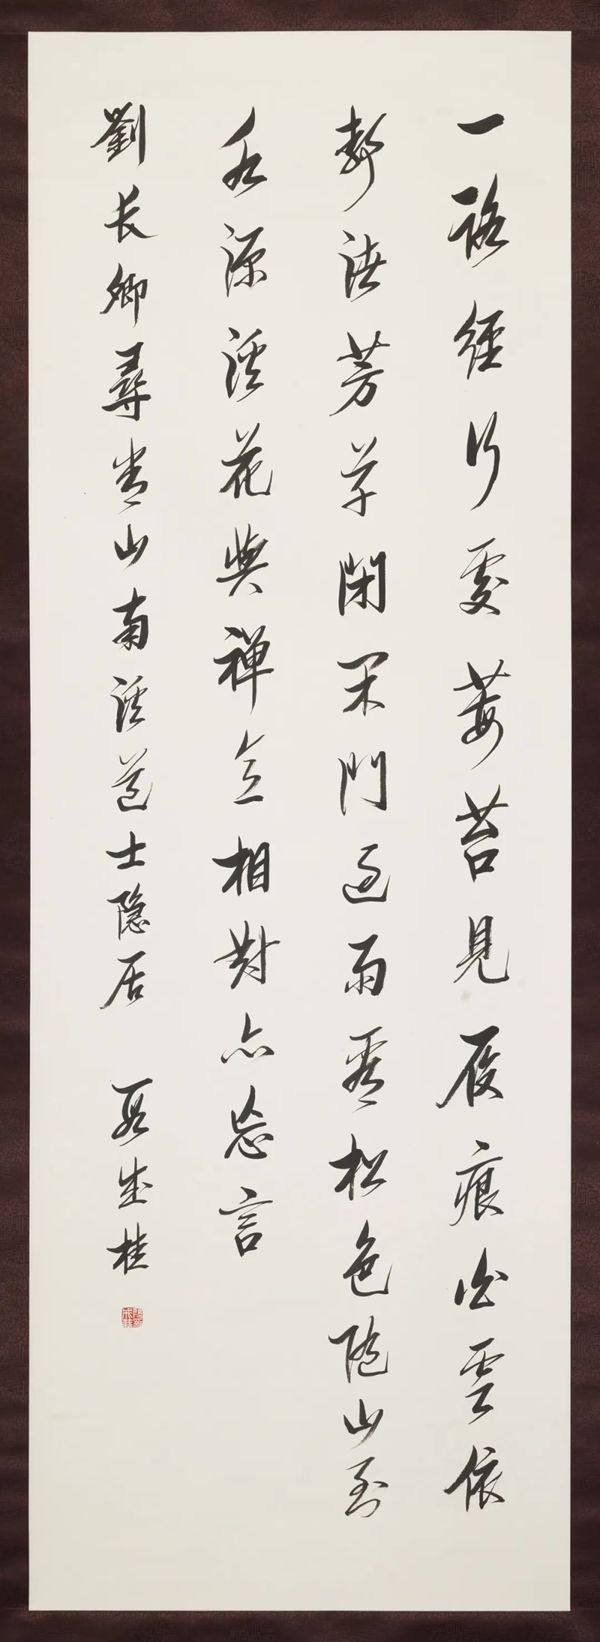 一路經行處莓苔見履痕白雲依
靜渚芳草閉閑門過雨看松色隨山到
水源溪花與禪意相對亦忘言
劉長卿尋常山南溪道士隱居 段成桂